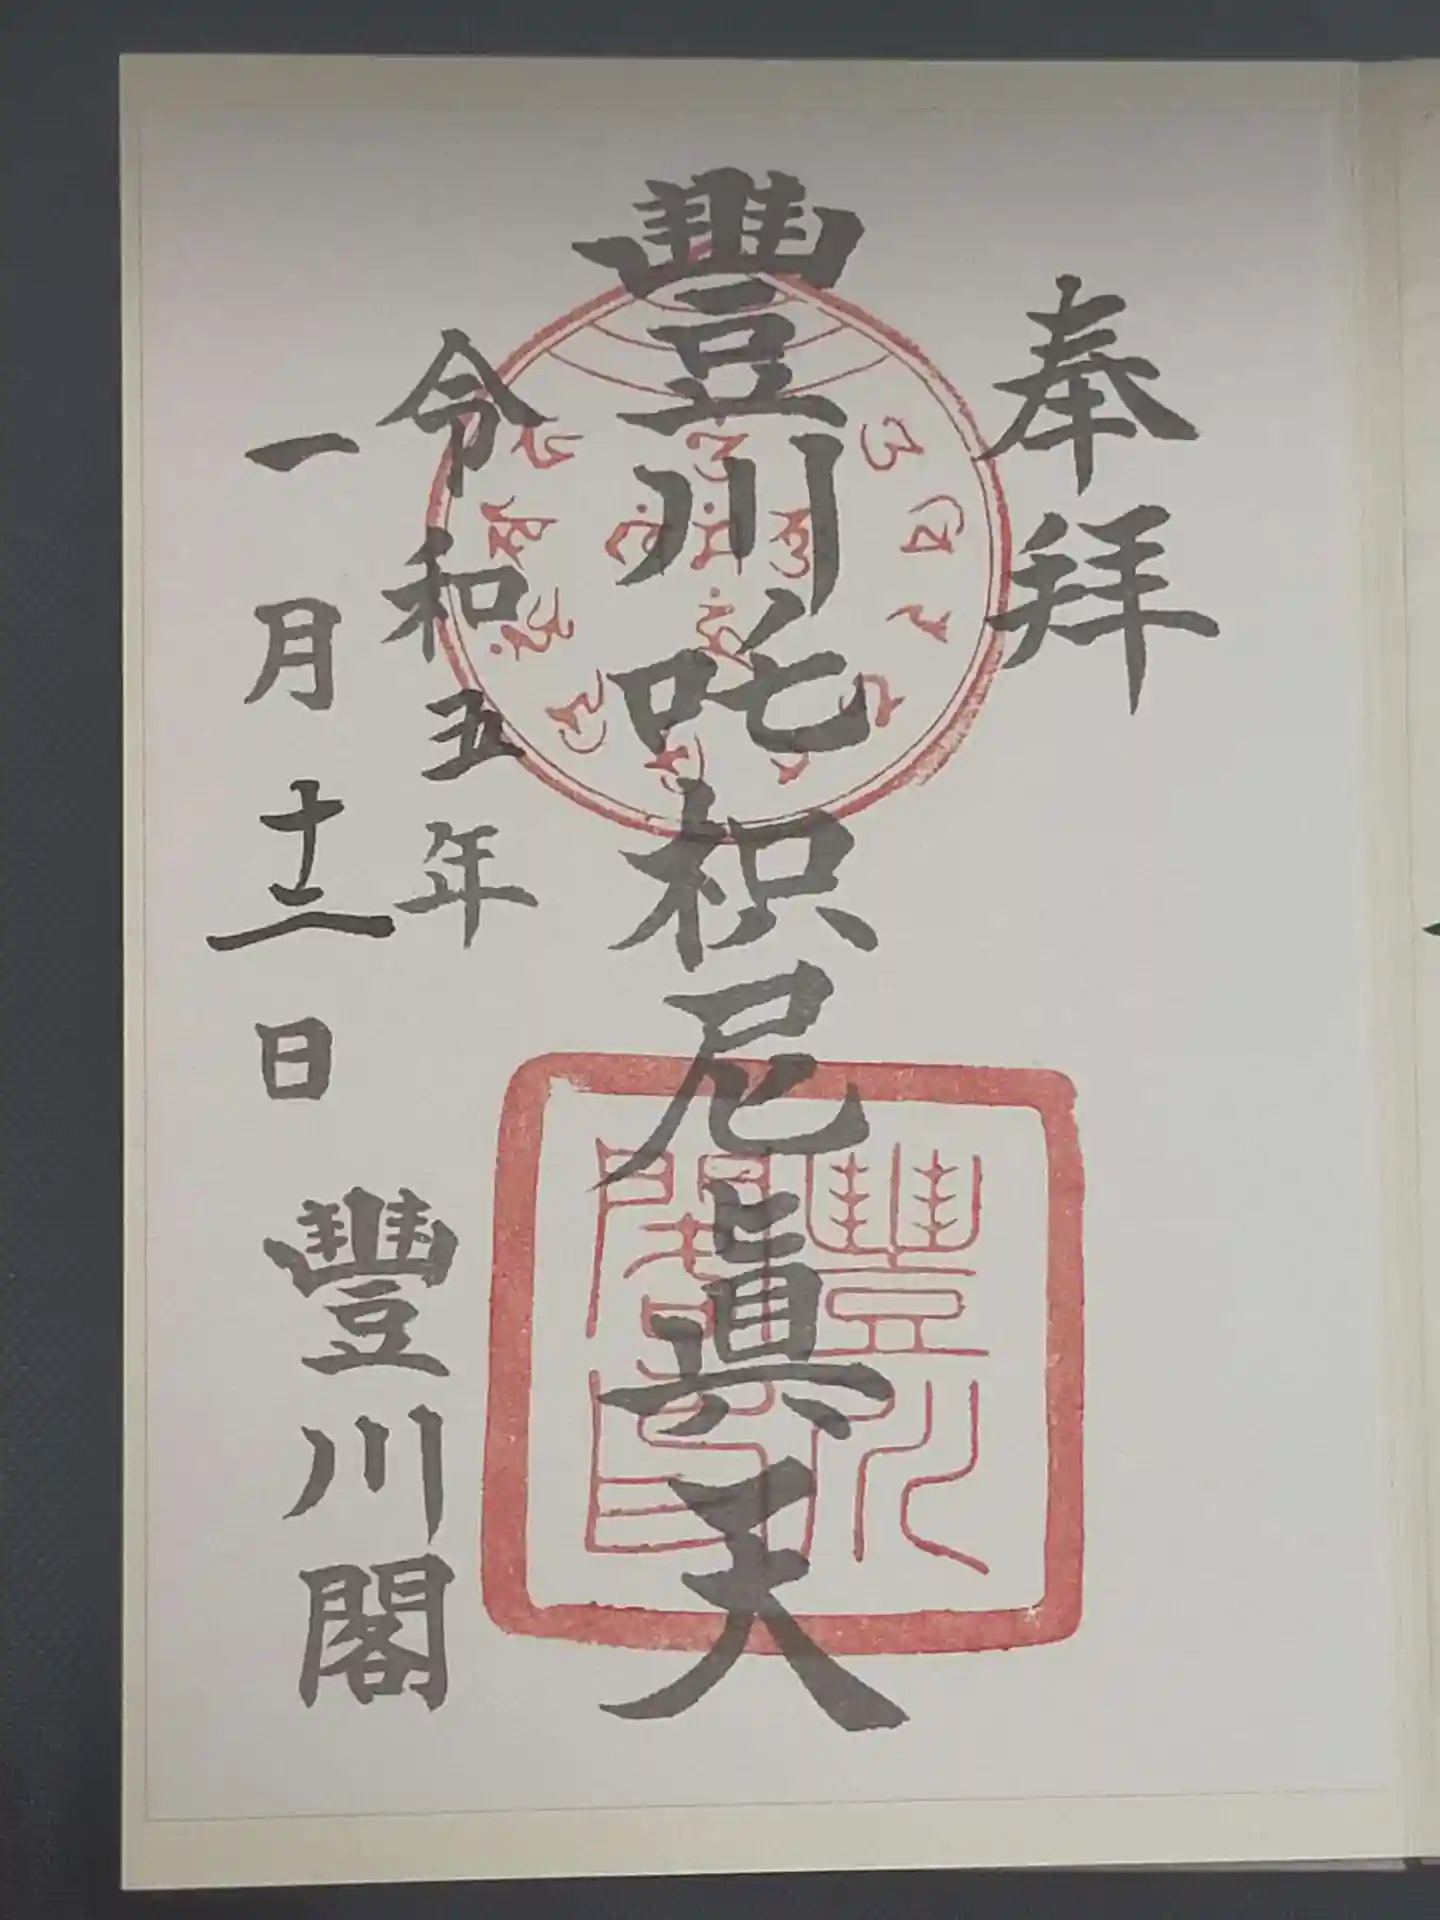 奉拜
豐川吒枳尼眞天
令和五年
一月十二日
豐川閣
豐川
閣印